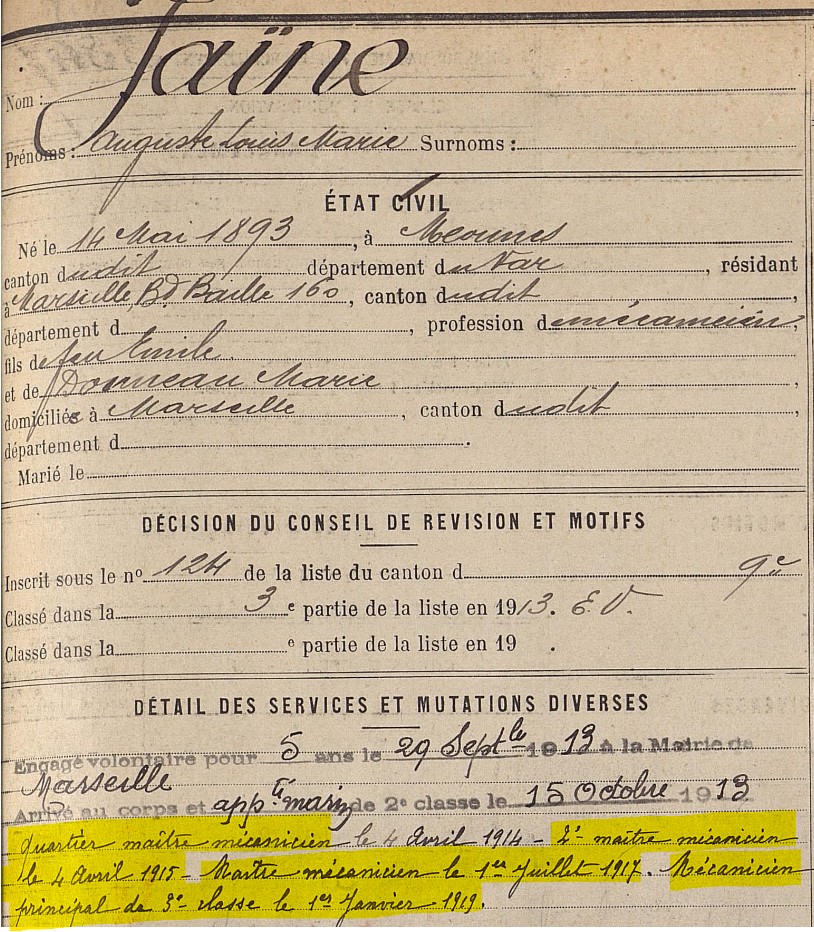 Nom : Jaïne
Prénoms : Auguste Louis Marie Surnoms :
ÉTAT CIVIL
Né le 14 Mai 1893, à Méounes
canton dudit département du Var, résidant
à Marseille, Bd Baille 160, canton dudit,
département d, profession de mécanicien,
fils de feu Emile
et de Donneau Marie,
domiciliés à Marseille, canton dudit,
département d.
Marié le
DÉCISION DU CONSEIL DE REVISION ET MOTIFS
Inscrit sous le no 124 de la liste du canton d 9e
Classé dans la 3e partie de la liste en 1913. E.V.
Classé dans la e partie de la liste en 19 .
DÉTAIL DES SERVICES ET MUTATIONS DIVERSES
Engagé volontaire pour 5 ans le 29 Septbre 1913 à la Mairie de
Marseille
Arrivé au corps et appti marin de 2e classe le 15 Octobre 1913
Quartier maître mécanicien le 4 Avril 1914 - 2e maître mécanicien
le 4 Avril 1915 - Maître mécanicien le 1er Juillet 1917. Mécanicien
principal de 3e classe le 1er Janvier 1919.